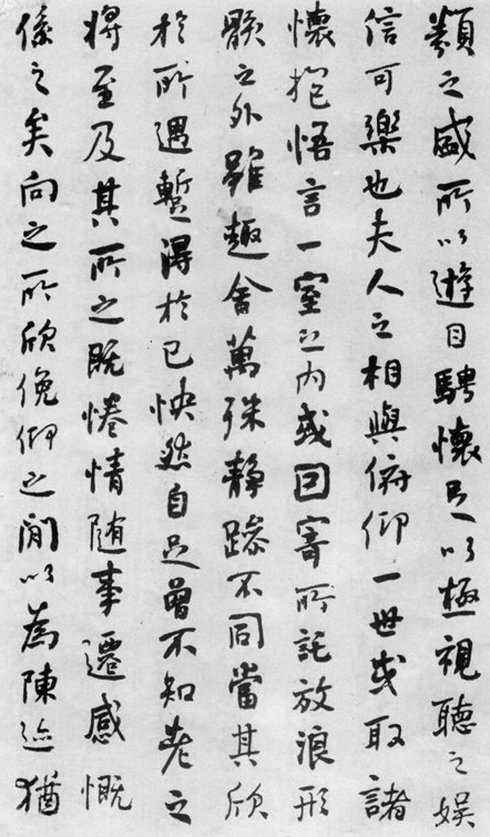 類之盛所以遊目騁懷足以極視聽之娛
信可樂也夫人之相與俯仰一世或取諸
懷抱悟言一室之內或因寄所託放浪形
骸之外雖趣舍萬殊靜躁不同當其欣
於所遇暫得於己怏然自足曾不知老之
將至及其所之既惓情随事遷感慨
係之矣向之所欣俛仰之閒以為陳迹猶